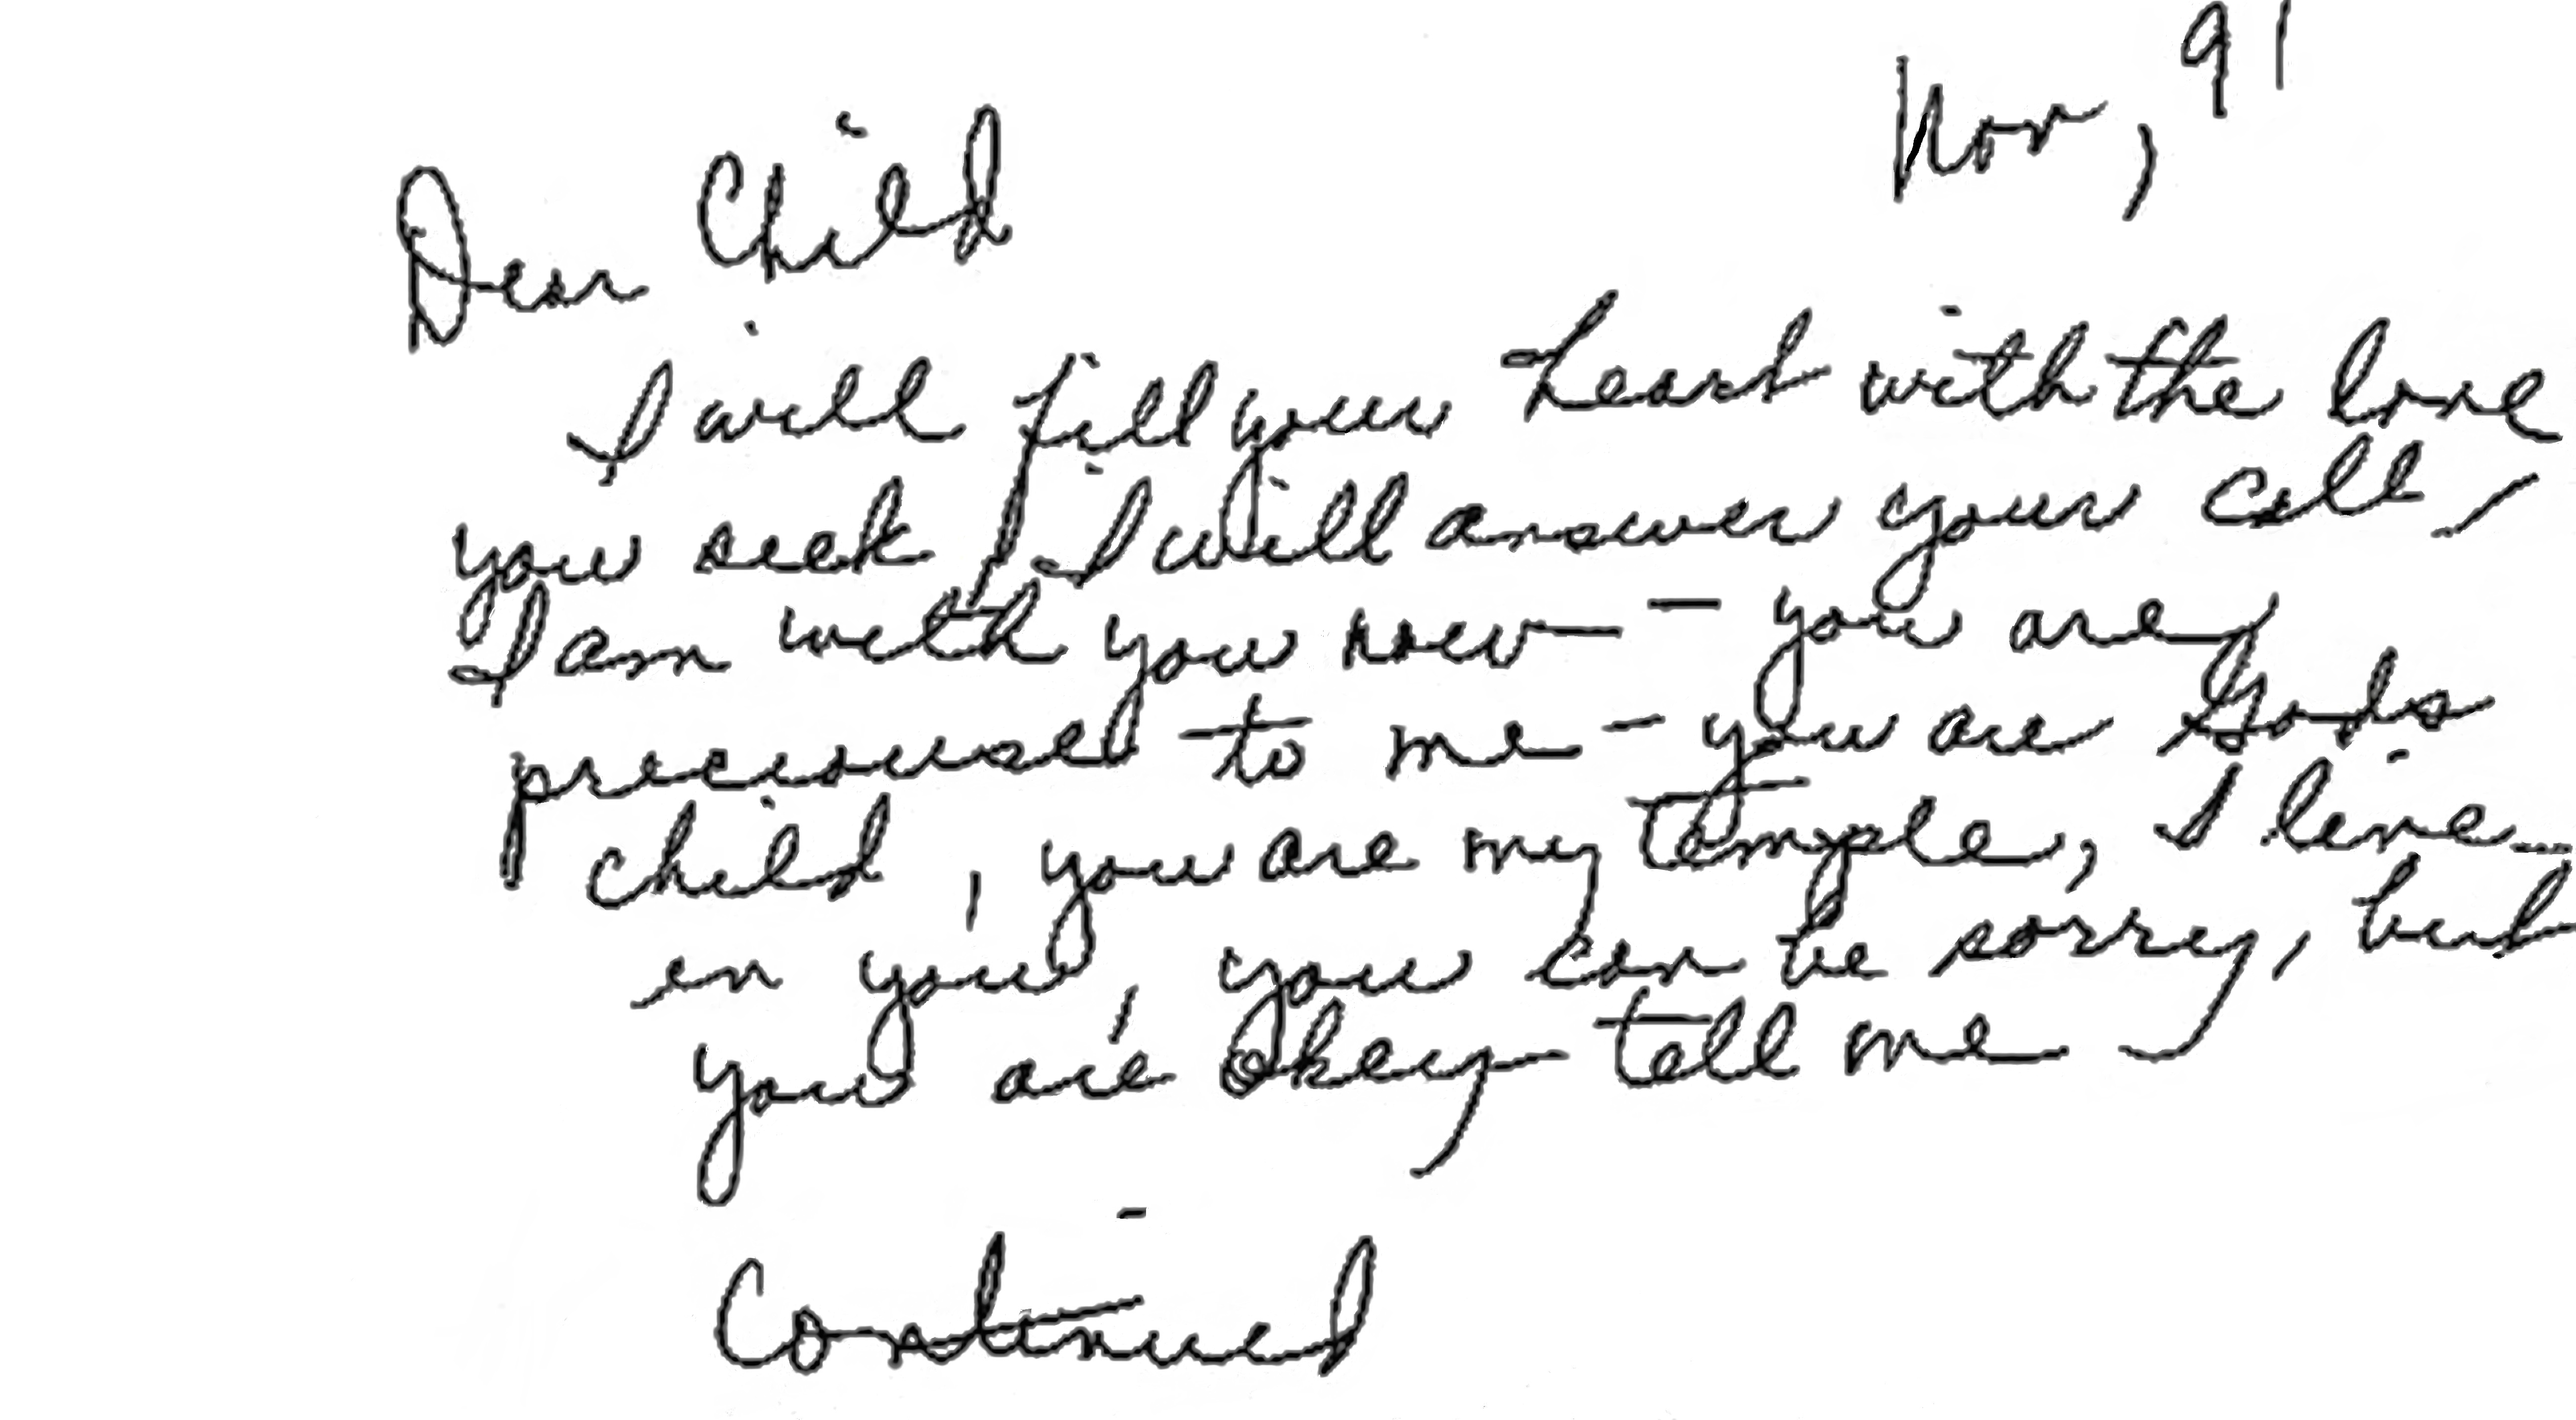 Nov, 91
Dear Child
I will fill your heart with the love
you seek, I will answer your call,
I am with you now — you are
preciouse to me - you are Gods
child, you are my temple, I live
in you, you can be sorry, but
you are okey tell me -
Continued